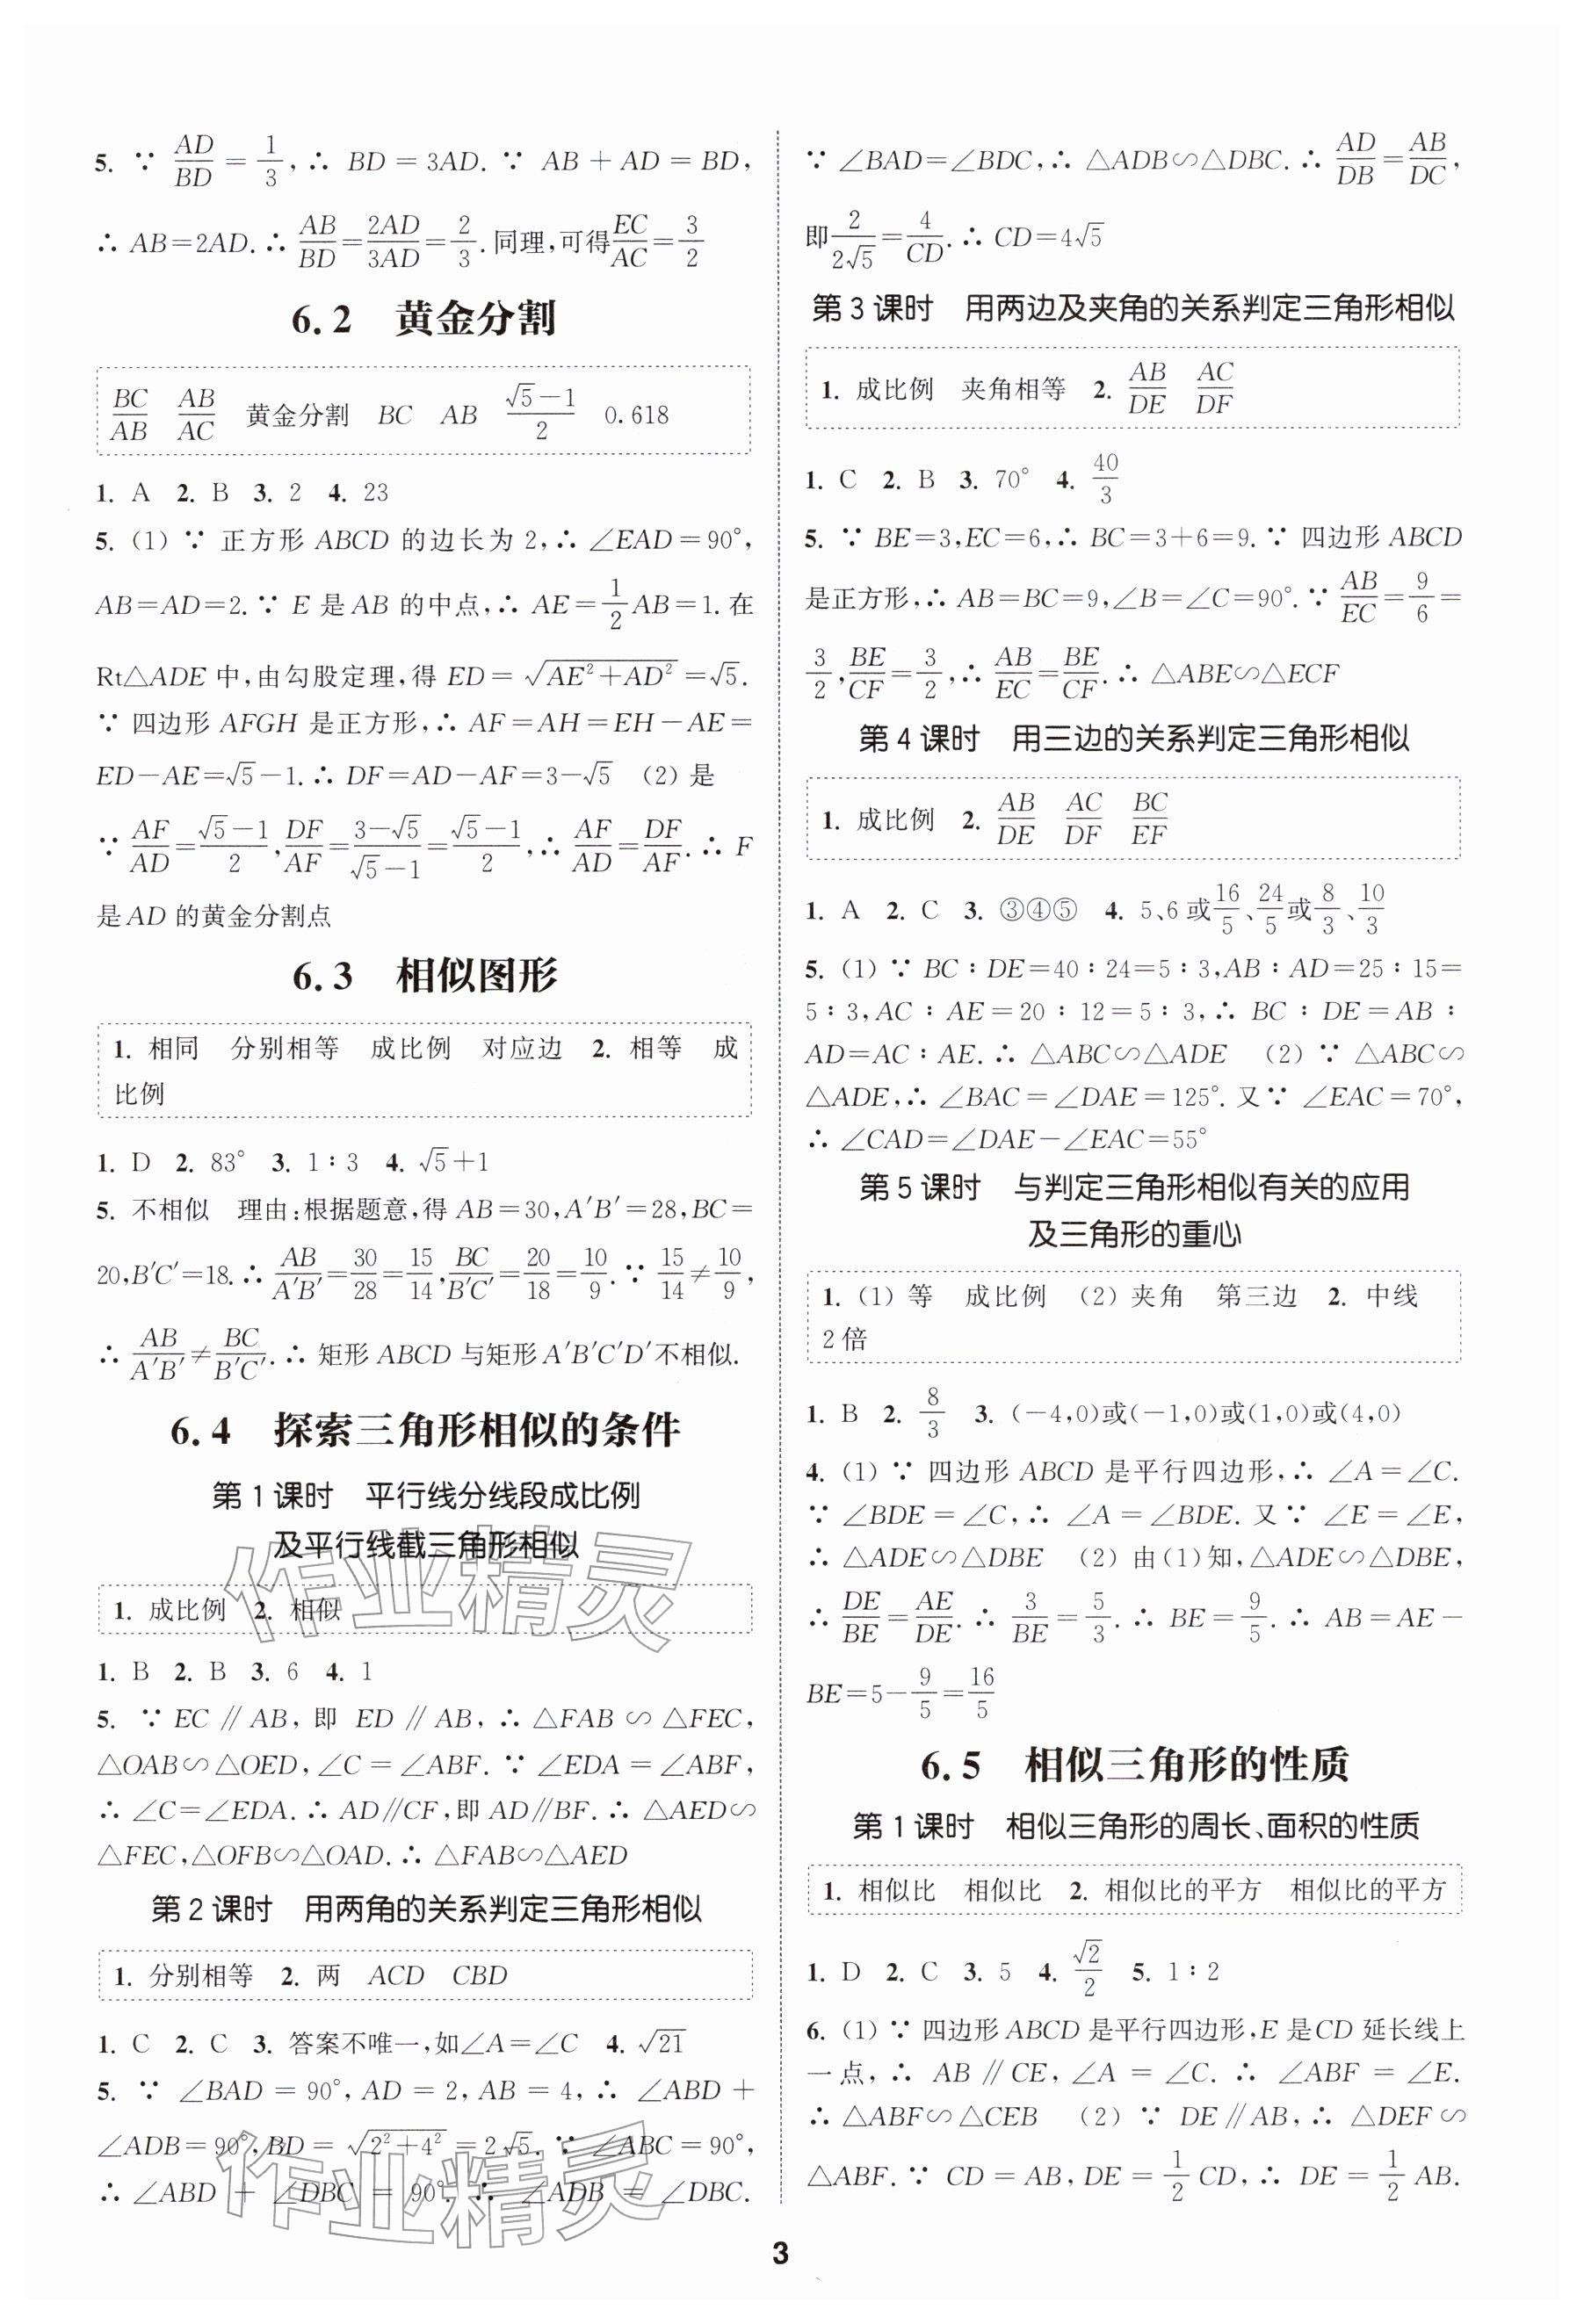 5. ∵ AD/BD = 1/3, ∴ BD = 3AD. ∵ AB + AD = BD,
∴ AB=2AD. ∴ AB/BD = 2AD/3AD = 2/3. 同理,可得 EC/AC = 3/2
6.2 黄金分割
BC/AB AB/AC 黄金分割 BC AB (√5-1)/2 0.618
1. A 2. B 3. 2 4. 23
5. (1) ∵ 正方形 ABCD 的边长为 2,∴ ∠EAD=90°,
AB=AD=2. ∵ E 是 AB 的中点,∴ AE=1/2 AB=1. 在
Rt△ADE 中,由勾股定理,得 ED=√(AE²+AD²)=√5.
∵ 四边形 AFGH 是正方形,∴ AF=AH=EH-AE=
ED-AE=√5-1. ∴ DF=AD-AF=3-√5 (2) 是
∵ AF/AD=(√5-1)/2, DF/AF=(3-√5)/(√5-1)=(√5-1)/2, ∴ AF/AD=DF/AF. ∴ F
是 AD 的黄金分割点
6.3 相似图形
1. 相同 分别相等 成比例 对应边 2. 相等 成
比例
1. D 2. 83° 3. 1∶3 4. √5+1
5. 不相似 理由:根据题意,得 AB=30,A′B′=28,BC=
20,B′C′=18. ∴ AB/A′B′=30/28=15/14, BC/B′C′=20/18=10/9. ∵ 15/14≠10/9,
∴ AB/A′B′≠BC/B′C′. ∴ 矩形 ABCD 与矩形 A′B′C′D′不相似.
6.4 探索三角形相似的条件
第 1 课时 平行线分线段成比例
及平行线截三角形相似
1. 成比例 2. 相似
1. B 2. B 3. 6 4. 1
5. ∵ EC∥AB, 即 ED∥AB, ∴ △FAB∽△FEC,
△OAB∽△OED,∠C=∠ABF. ∵ ∠EDA=∠ABF,
∴ ∠C=∠EDA. ∴ AD∥CF,即 AD∥BF. ∴ △AED∽
△FEC,△OFB∽△OAD. ∴ △FAB∽△AED
第 2 课时 用两角的关系判定三角形相似
1. 分别相等 2. 两 ACD CBD
1. C 2. C 3. 答案不唯一,如∠A=∠C 4. √21
5. ∵ ∠BAD=90°, AD=2, AB=4, ∴ ∠ABD+
∠ADB=90°,BD=√(2²+4²)=2√5. ∵ ∠ABC=90°,
∴ ∠ABD+∠DBC=90°. ∴ ∠ADB=∠DBC.
∵ ∠BAD=∠BDC,∴ △ADB∽△DBC. ∴ AD/DB=AB/DC,
即 2/(2√5)=4/CD. ∴ CD=4√5
第 3 课时 用两边及夹角的关系判定三角形相似
1. 成比例 夹角相等 2. AB/DE AC/DF
1. C 2. B 3. 70° 4. 40/3
5. ∵ BE=3,EC=6,∴ BC=3+6=9. ∵ 四边形 ABCD
是正方形,∴ AB=BC=9,∠B=∠C=90°. ∵ AB/EC=9/6=
3/2, BE/CF=3/2, ∴ AB/EC=BE/CF. ∴ △ABE∽△ECF
第 4 课时 用三边的关系判定三角形相似
1. 成比例 2. AB/DE AC/DF BC/EF
1. A 2. C 3. ③④⑤ 4. 5、6 或 16/5、24/5 或 8/3、10/3
5. (1) ∵ BC∶DE=40∶24=5∶3,AB∶AD=25∶15=
5∶3,AC∶AE=20∶12=5∶3,∴ BC∶DE=AB∶
AD=AC∶AE. ∴ △ABC∽△ADE (2) ∵ △ABC∽
△ADE,∴ ∠BAC=∠DAE=125°. 又∵ ∠EAC=70°,
∴ ∠CAD=∠DAE-∠EAC=55°
第 5 课时 与判定三角形相似有关的应用
及三角形的重心
1. (1) 等 成比例 (2) 夹角 第三边 2. 中线
2 倍
1. B 2. 8/3 3. (-4,0)或(-1,0)或(1,0)或(4,0)
4. (1) ∵ 四边形 ABCD 是平行四边形,∴ ∠A=∠C.
∵ ∠BDE=∠C,∴ ∠A=∠BDE. 又∵ ∠E=∠E,
∴ △ADE∽△DBE (2) 由(1)知,△ADE∽△DBE,
∴ DE/BE=AE/DE. ∴ 3/BE=5/3. ∴ BE=9/5. ∴ AB=AE-
BE=5-9/5=16/5
6.5 相似三角形的性质
第 1 课时 相似三角形的周长、面积的性质
1. 相似比 相似比 2. 相似比的平方 相似比的平方
1. D 2. C 3. 5 4. √2/2 5. 1∶2
6. (1) ∵ 四边形 ABCD 是平行四边形,E 是 CD 延长线上
一点, ∴ AB∥CE,∠A=∠C. ∴ ∠ABF=∠E.
∴ △ABF∽△CEB (2) ∵ DE∥AB,∴ △DEF∽
△ABF. ∵ CD=AB,DE=1/2 CD,∴ DE=1/2 AB.
3
作业精灵
作业精灵